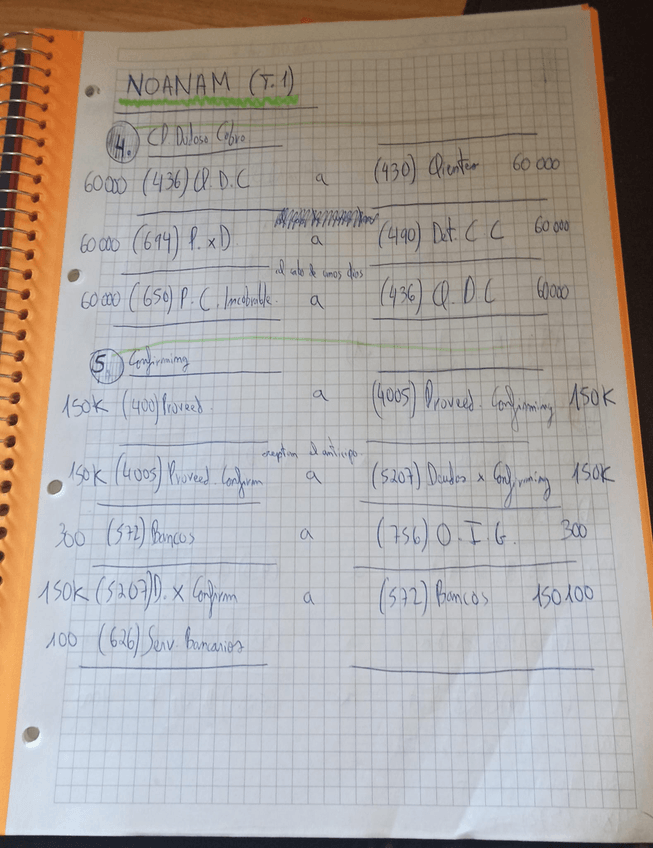 NOANAM (T.1)
4. Cl. Dudoso Cobro
60000 (436) Cl. D. C a (430) Clientes 60 000
60 000 (694) P. x D a (490) Det. C C 60 000
al cabo de unos días
60 000 (650) P. C. Incobrable a (436) Cl. D C 60000
5. Confirming
150K (400) Proveed. a (4005) Proveed. Confirming 150K
aceptan el anticipo
150K (4005) Proveed. Confirm a (5207) Deudas x Confirming 150K
300 (572) Bancos a (756) O. I. G. 300
150K (5207) D. x Confirm a (572) Bancos 150100
100 (626) Serv. Bancarios